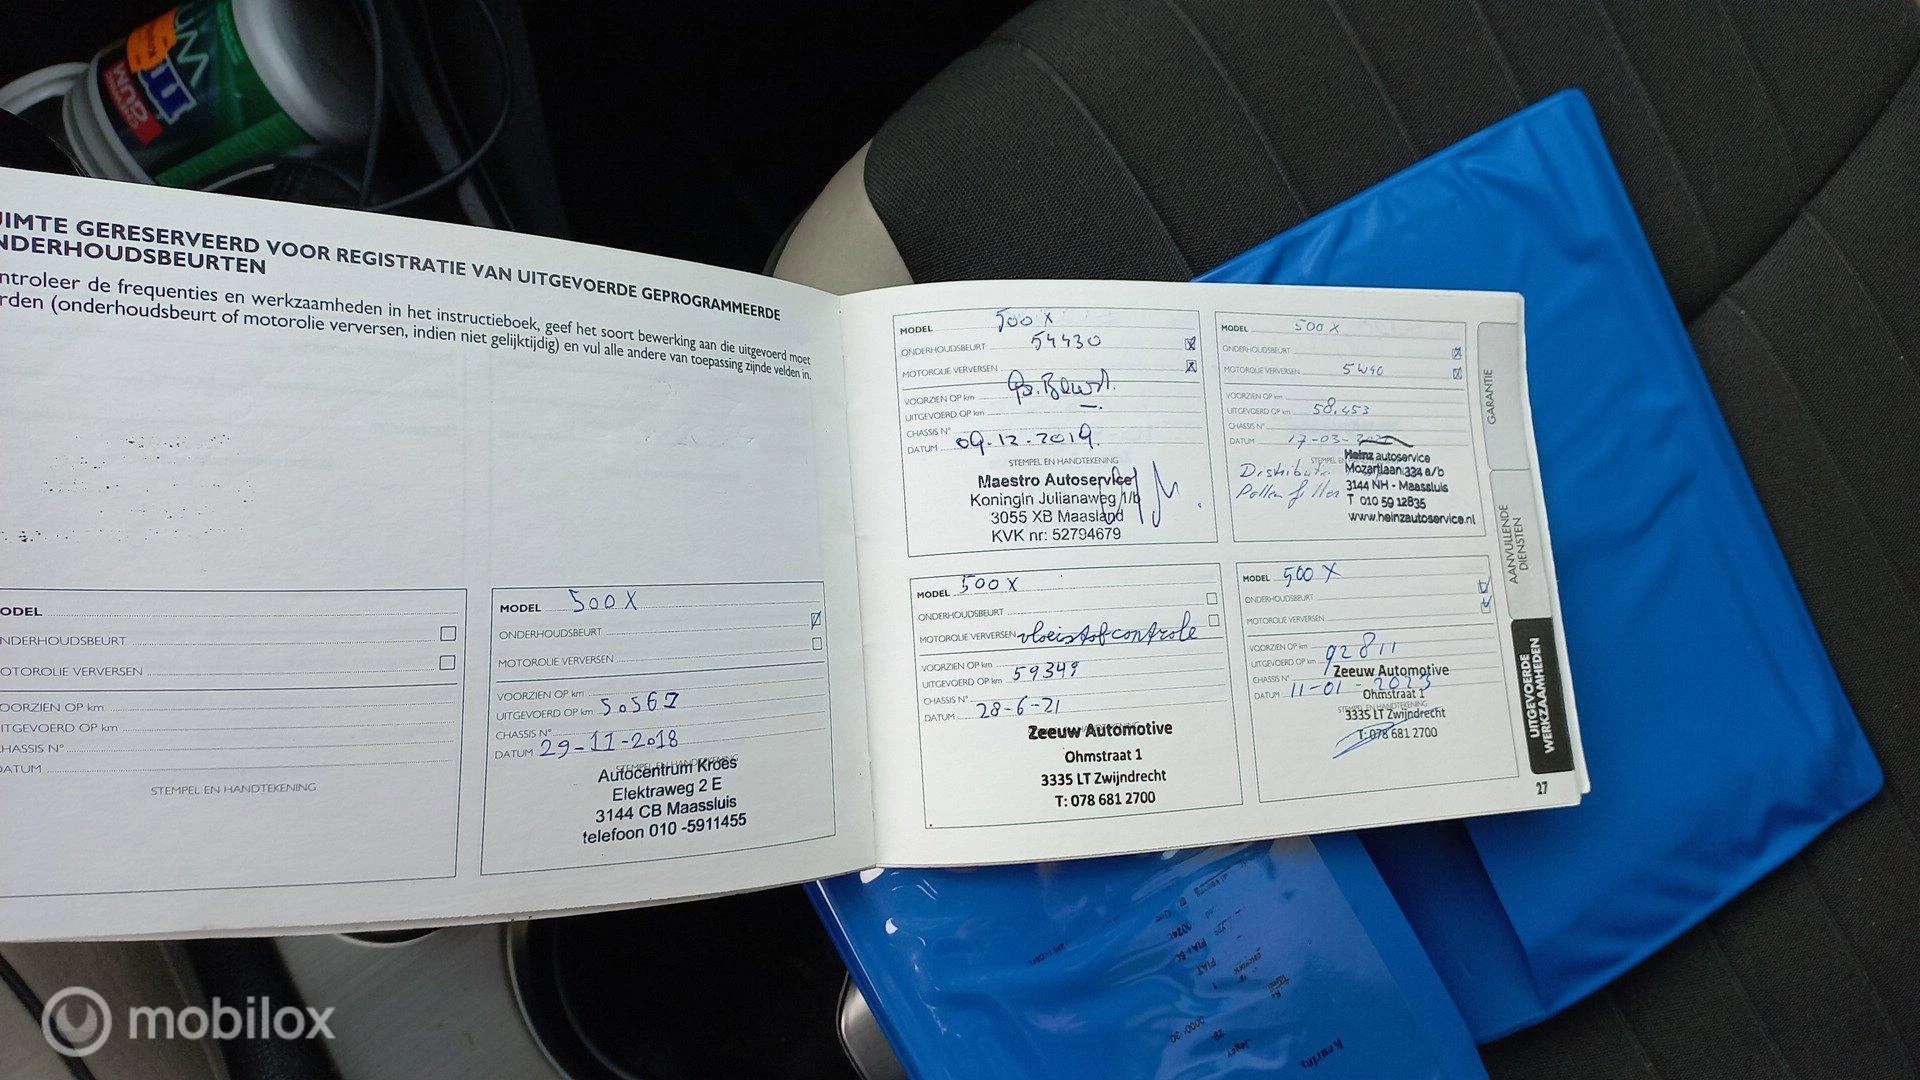 GUM
GERESERVEERD VOOR REGISTRATIE VAN UITGEVOERDE GEPROGRAMMEERDE
de frequenties en werkzaamheden in het instructieboek, geef het soort bewerking aan die uitgevoerd moet
(onderhoudsbeurt of motorolie verversen, indien niet gelijktijdig) en vul alle andere van toepassing zijnde velden in.
STEMPEL EN HANDTEKENING
MODEL 500 X
ONDERHOUDSBEURT
MOTOROLIE VERVERSEN
VOORZIEN OP km
UITGEVOERD OP km 50567
CHASSIS N°
DATUM 29-11-2018
STEMPEL EN HANDTEKENING
Autocentrum Kroes
Elektraweg 2 E
3144 CB Maassluis
telefoon 010 -5911455
MODEL 500 X
ONDERHOUDSBEURT 54430
MOTOROLIE VERVERSEN
VOORZIEN OP km
UITGEVOERD OP km
CHASSIS N°
DATUM 09-12-2019.
STEMPEL EN HANDTEKENING
Maestro Autoservice
Koningin Julianaweg 1/b
3055 XB Maasland
KVK nr: 52794679
MODEL 500 X
ONDERHOUDSBEURT
MOTOROLIE VERVERSEN 5W40
VOORZIEN OP km
UITGEVOERD OP km 58.453
CHASSIS N°
DATUM 17-03-
Heinz autoservice
Mozartlaan 334 a/b
3144 NH - Maassluis
T 010 59 12835
www.heinzautoservice.nl
Pollen filter
MODEL 500 X
ONDERHOUDSBEURT
MOTOROLIE VERVERSEN vloeistofcontrole
VOORZIEN OP km
UITGEVOERD OP km 59349
CHASSIS N°
DATUM 28-6-21
Zeeuw Automotive
Ohmstraat 1
3335 LT Zwijndrecht
T: 078 681 2700
MODEL 500 X
ONDERHOUDSBEURT
MOTOROLIE VERVERSEN
VOORZIEN OP km 92811
UITGEVOERD OP km
CHASSIS N°
DATUM 11-01-2023
Zeeuw Automotive
Ohmstraat 1
STEMPEL EN HANDTEKENING
3335 LT Zwijndrecht
T: 078 681 2700
GARANTIE
AANVULLENDE
DIENSTEN
UITGEVOERDE
WERKZAAMHEDEN
27
FIAT
mobilox